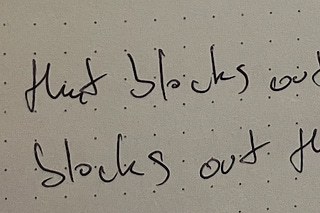 that blocks out
blocks out th